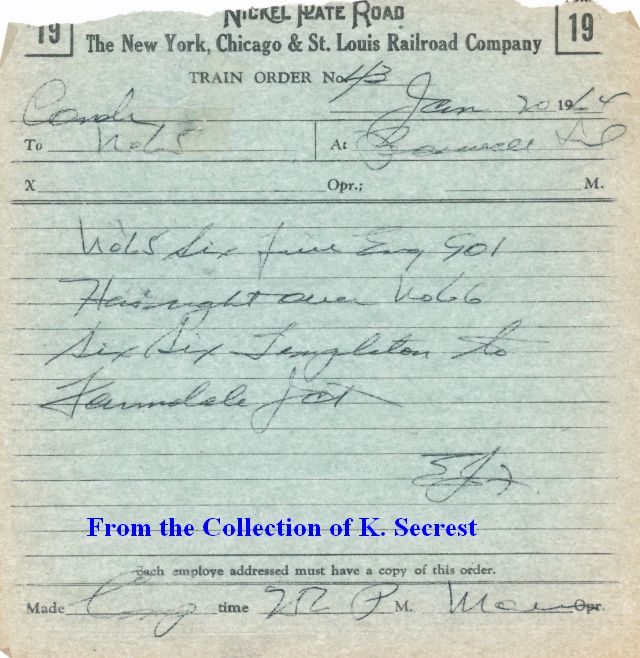 NICKEL PLATE ROAD
19 19
The New York, Chicago & St. Louis Railroad Company
TRAIN ORDER No. 43
Jan 20 1964
To No65 At Ind
X Opr.; M.
No65 Six five Eng 901
Has right over No66
Six Six Templeton to
Farmdale Jct
From the Collection of K. Secrest
Each employe addressed must have a copy of this order.
Made Com time 252 P M. Opr.